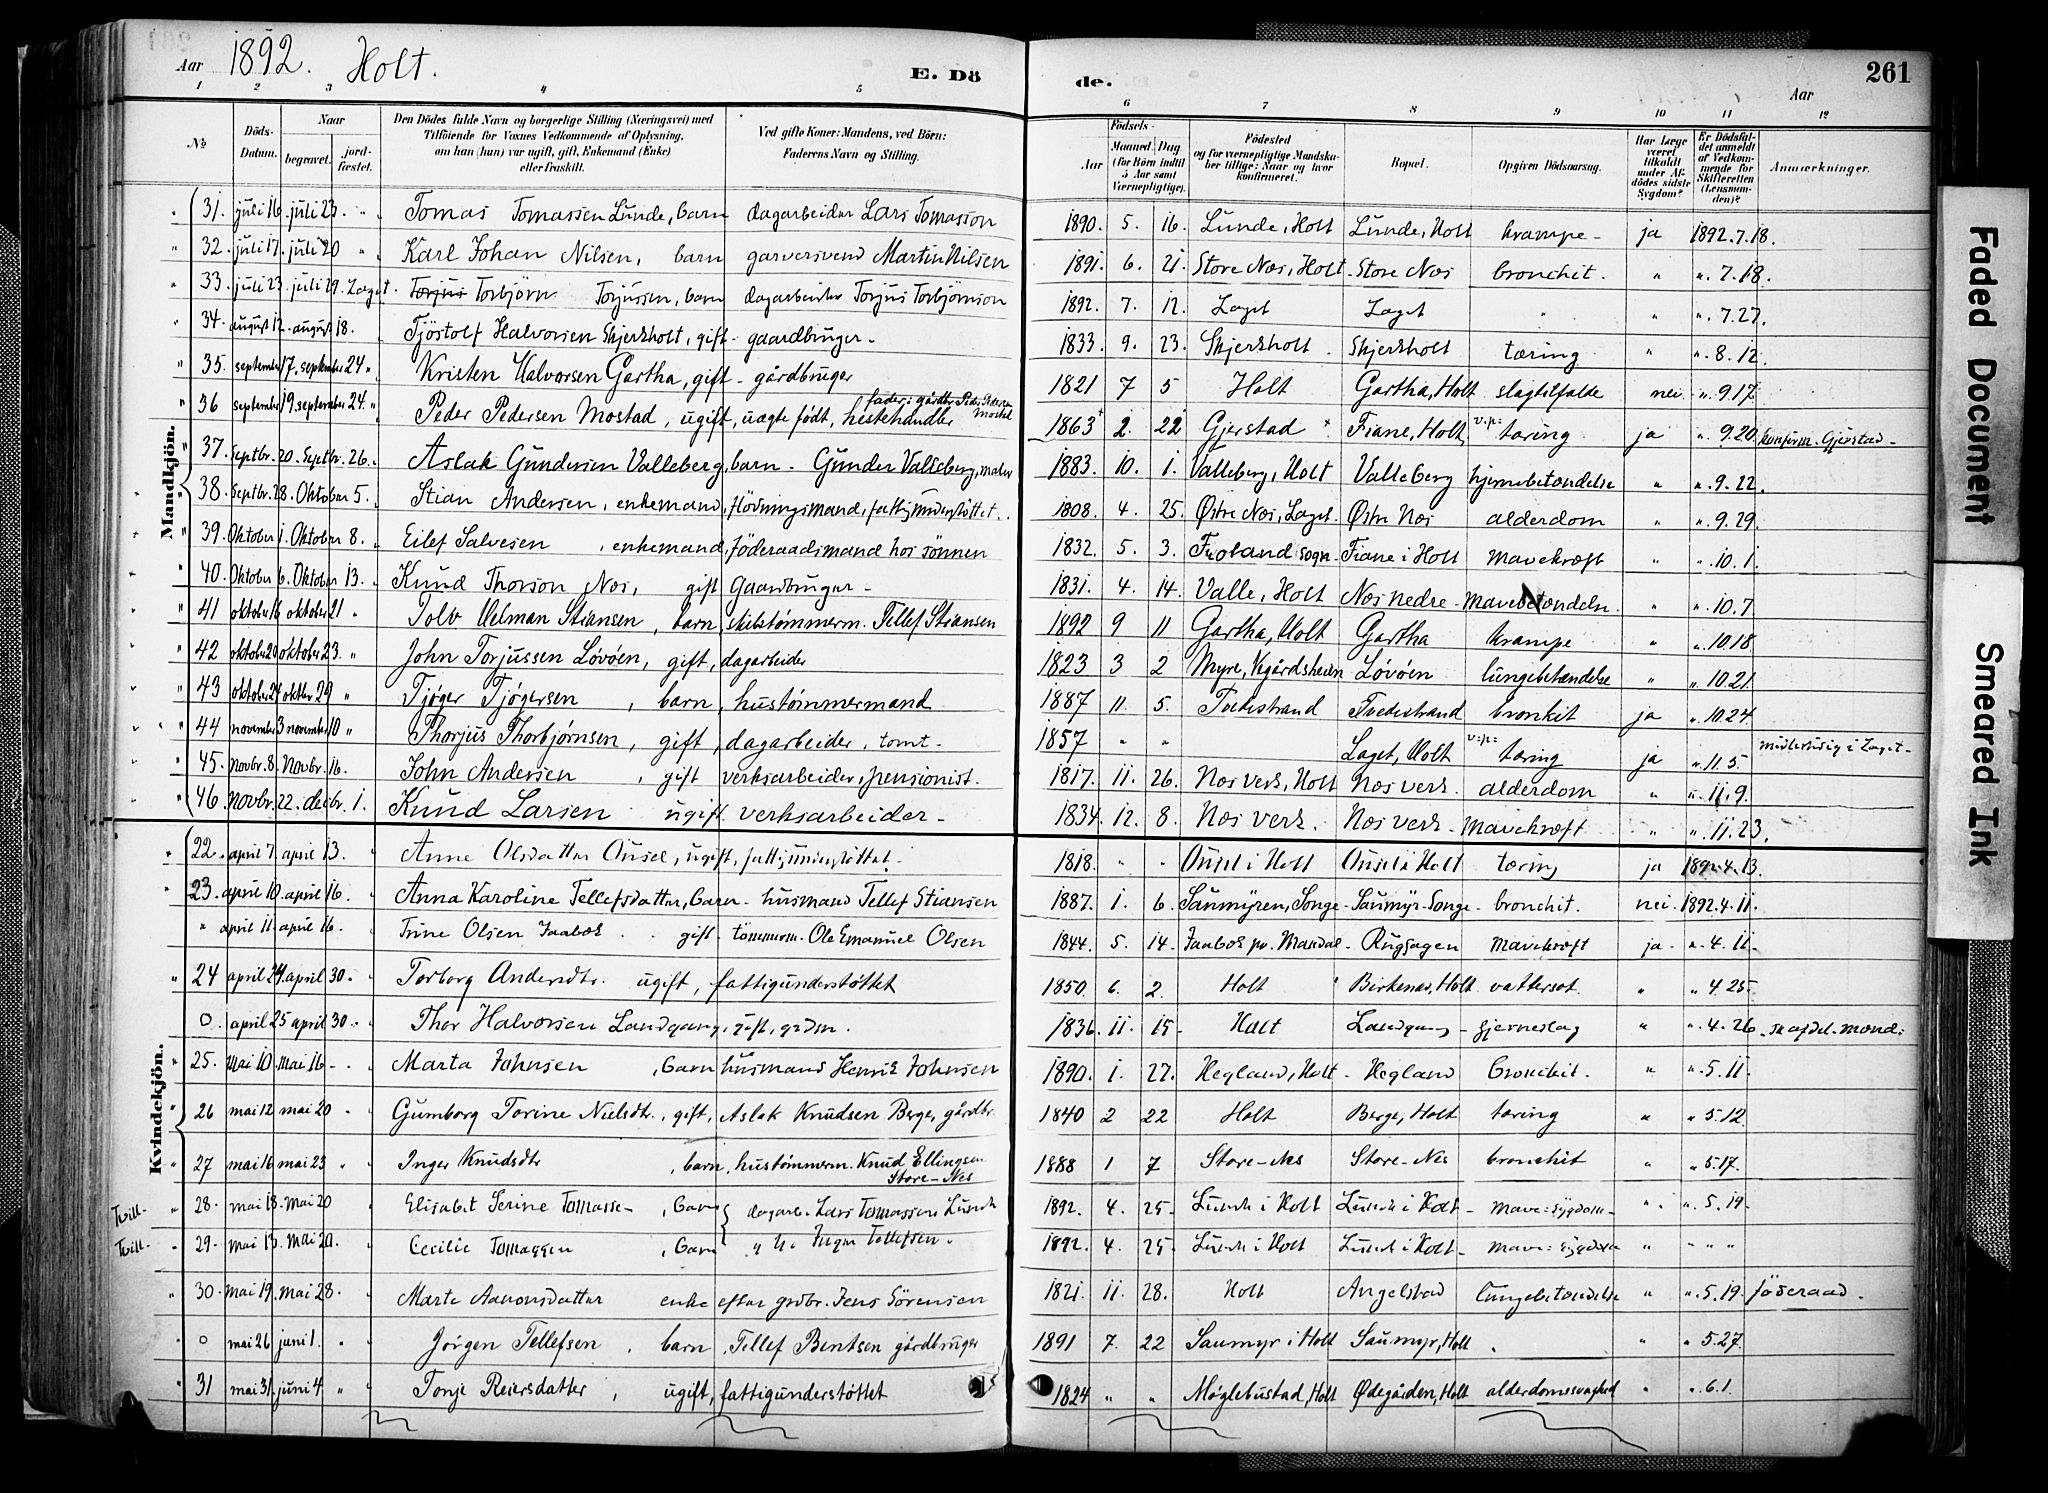 Aar 1892. Holt. E. Dö de. Aar 261
1 2 3 4 5 6 7 8 9 10 11 12
No
Döds-Datum.
Naar begravet. jordfæstet.
Den Dödes fulde Navn og borgerlige Stilling (Næringsvei) med Tilföiende for Voxnes Vedkommende af Oplysning, om han (hun) var ugift, gift, Enkemand (Enke) eller fraskilt.
Ved gifte Koner: Mandens, ved Börn: Faderens Navn og Stilling.
Födsels-Aar Maaned Dag (for Börn indtil 5 Aar samt Værnepligtige).
Födested og for værnepligtige Mandskaber tillige: Naar og hvor konfirmeret.
Bopæl.
Opgiven Dödsaarsag.
Har Læge været tilkaldt under Afdödes sidste Sygdom?
Er Dödsfaldet anmeldt af Vedkommende for Skifteretten (Lensmanden)?
Anmærkninger.
Mandkjön.
31. juli 16. juli 23. " Tomas Tomassen Lunde, barn dagarbeider Lars Tomasson 1890. 5. 16. Lunde, Holt Lunde, Holt krampe- ja 1892.7.18.
32. juli 17. juli 20 " Karl Johan Nilsen, barn garversvend Martin Nilsen 1891. 6. 21. Store Næs, Holt Store Næs bronchit. " ". 7.18.
33. juli 23. juli 29. Laget. Torjus Torbjörn Torjussen, barn dagarbeider Torjus Torbjörnson 1892. 7. 12. Laget Laget " " ". 7.27.
34. august 12. august 18. Tjöstolf Halvorsen Skjerkholt, gift gaardbruger. 1833. 9. 23. Skjerkholt. Skjerkholt tæring " ". 8.12.
35. september 17. september 24 " Kristen Halvorsen Gartha, gift gårdbruger 1821 7 5 Holt Gartha, Holt slagtilfælde nei ". 9.17
36 september 19. september 24. " Peder Pedersen Mostad, ugift, uægte født, hestehandler 1863 2. 22 Gjerstad Fiane, Holt, tæring ja ". 9.20. konfirm. Gjerstad-
37. Septbr. 20. Septbr. 26. Aslak Gundersen Valleberg, barn- Gunder Valleberg, maler 1883. 10. 1. Valleberg, Holt Valleberg hjernebetændelse " ". 9.22.
38. Septbr. 28. Oktober 5. Stian Andersen, enkemand, flödningsmand, fattigunderstöttet. 1808. 4. 25. Østre Næs, Laget. Østre Næs alderdom " ". 9.29.
39. Oktober 1. Oktober 8. Eilef Salvesen, enkemand, föderaadsmand hos sönnen 1832. 5. 3. Froland sogn. Fiane i Holt mavekræft " ". 10.1.
40. Oktober 6. Oktober 13. Knud Thorson Næs, gift Gaardbruger- 1831. 4. 14. Valle, Holt Næs nedre- mavebetændelse. " ". 10.7
41 oktober 16 oktober 21 " Tolv Velman Stiansen, barn, skibstømmerm. Tellef Stiansen 1892 9 11 Gartha, Holt Gartha krampe " ". 10.18
42 oktober 20 oktober 23. " John Torjussen Løvøen, gift, dagarbeider 1823 3 2 Myre, Vegårdsheien Løvøen lungebetændelse " ". 10.21.
43 oktober 24 oktbr. 29 " Tjøger Tjøgersen, barn, hustømmermand 1887 11. 5. Tvedestrand Tvedestrand bronkit ja ". 10.24
44 november 3 november 10 " Thorjus Thorbjørnsen, gift, dagarbeider, tomt. 1857 " " Laget, Holt tæring ja ". 11.5. midlertidig i Laget-
45. Novbr. 8. Novbr. 16. John Andersen, gift verksarbeider, pensionist. 1817. 11. 26. Næs verk, Holt Næs verk. alderdom " ". 11.9.
46. Novbr. 22. decbr. 1. Knud Larsen ugift verksarbeider- 1834. 12. 8. Næs verk. Næs verk- mavekræft " ". 11.23.
Kvindekjön.
22. april 7. april 13. Anne Olsdatter Ousel, ugift, fattigunderstöttet. 1818. " " Ousel i Holt Ousel i Holt tæring ja 1892.4.13.
23. april 10. april 16. Anna Karoline Tellefsdatter, barn- husmand Tellef Stiansen 1887. 1. 6. Saumyren, Songe- Saumyr-Songe- bronchit. nei 1892.4.11.
" april 11. april 16. Trine Olsen Faabæk gift- tömmerm. Ole Emanuel Olsen 1844. 5. 14. Faabæk pr. Mandal- Rugsagen mavekræft ja- ". 4.11-
24 april 24 april 30 Torborg Andersdtr. ugift, fattigunderstøttet 1850. 6. 2. Holt Birkenæs, Holt vattersot. " " 4.25-
o. april 25 april 30 Thor Halvorsen Landgang, gift, grdm. 1836. 11. 15- Holt Landgang- hjerneslag " ". 4.26
25. Mai 10. Mai 16 Marta Johnsen, barn husmand Henrik Johnsen 1890. 1. 27. Hegland, Holt- Hegland bronchit. " ". 5.11-
26 mai 12 mai 20 Gumborg Torine Nielsdtr., gift, Aslak Knudsen Berge, gårdbr. 1840 2 22 Holt Berge, Holt tæring " " 5.12
27 mai 16 mai 23 " Inger Knudsdtr, barn, hustømmerm. Knud Ellingsen Store-Nes 1888 1 7 Store-Nes Store-Nes bronchit " " 5.17.
Tvill- 28. mai 18. Mai 20 Elisabet Serine Tomasse-, barn dagarb. Lars Tomassen Lunde 1892. 4. 25- Lunde i Holt Lunde i Holt- mave=sygdom- " ". 5.19.
Tvill. 29. Mai 13. Mai 20. Cecilie Tomassen, barn " h. Inger Tellefsen. 1892. 4. 25- Lunde i Holt Lunde i Holt- mave=sygdom " " " "
30. mai 19. mai 28. Marte Aanonsdatter enke efter grdbr. Jens Sörensen 1821. 11. 28. Holt Angelstad lungebetændelse " ". 5.19. föderaad.
o mai 26 juni 1. Jörgen Tellefsen, barn, Tellef Bentsen gårdbruger 1891 7. 22 Saumyr i Holt Saumyr, Holt " " 5.27.
31 mai 31. juni 4 " Tonje Reiersdatter, ugift, fattigunderstøttet 1824 " " Møglebustad, Holt Ødegården, Holt alderdomssvaghed " ". 6.1.
Faded Document
Smeared Ink